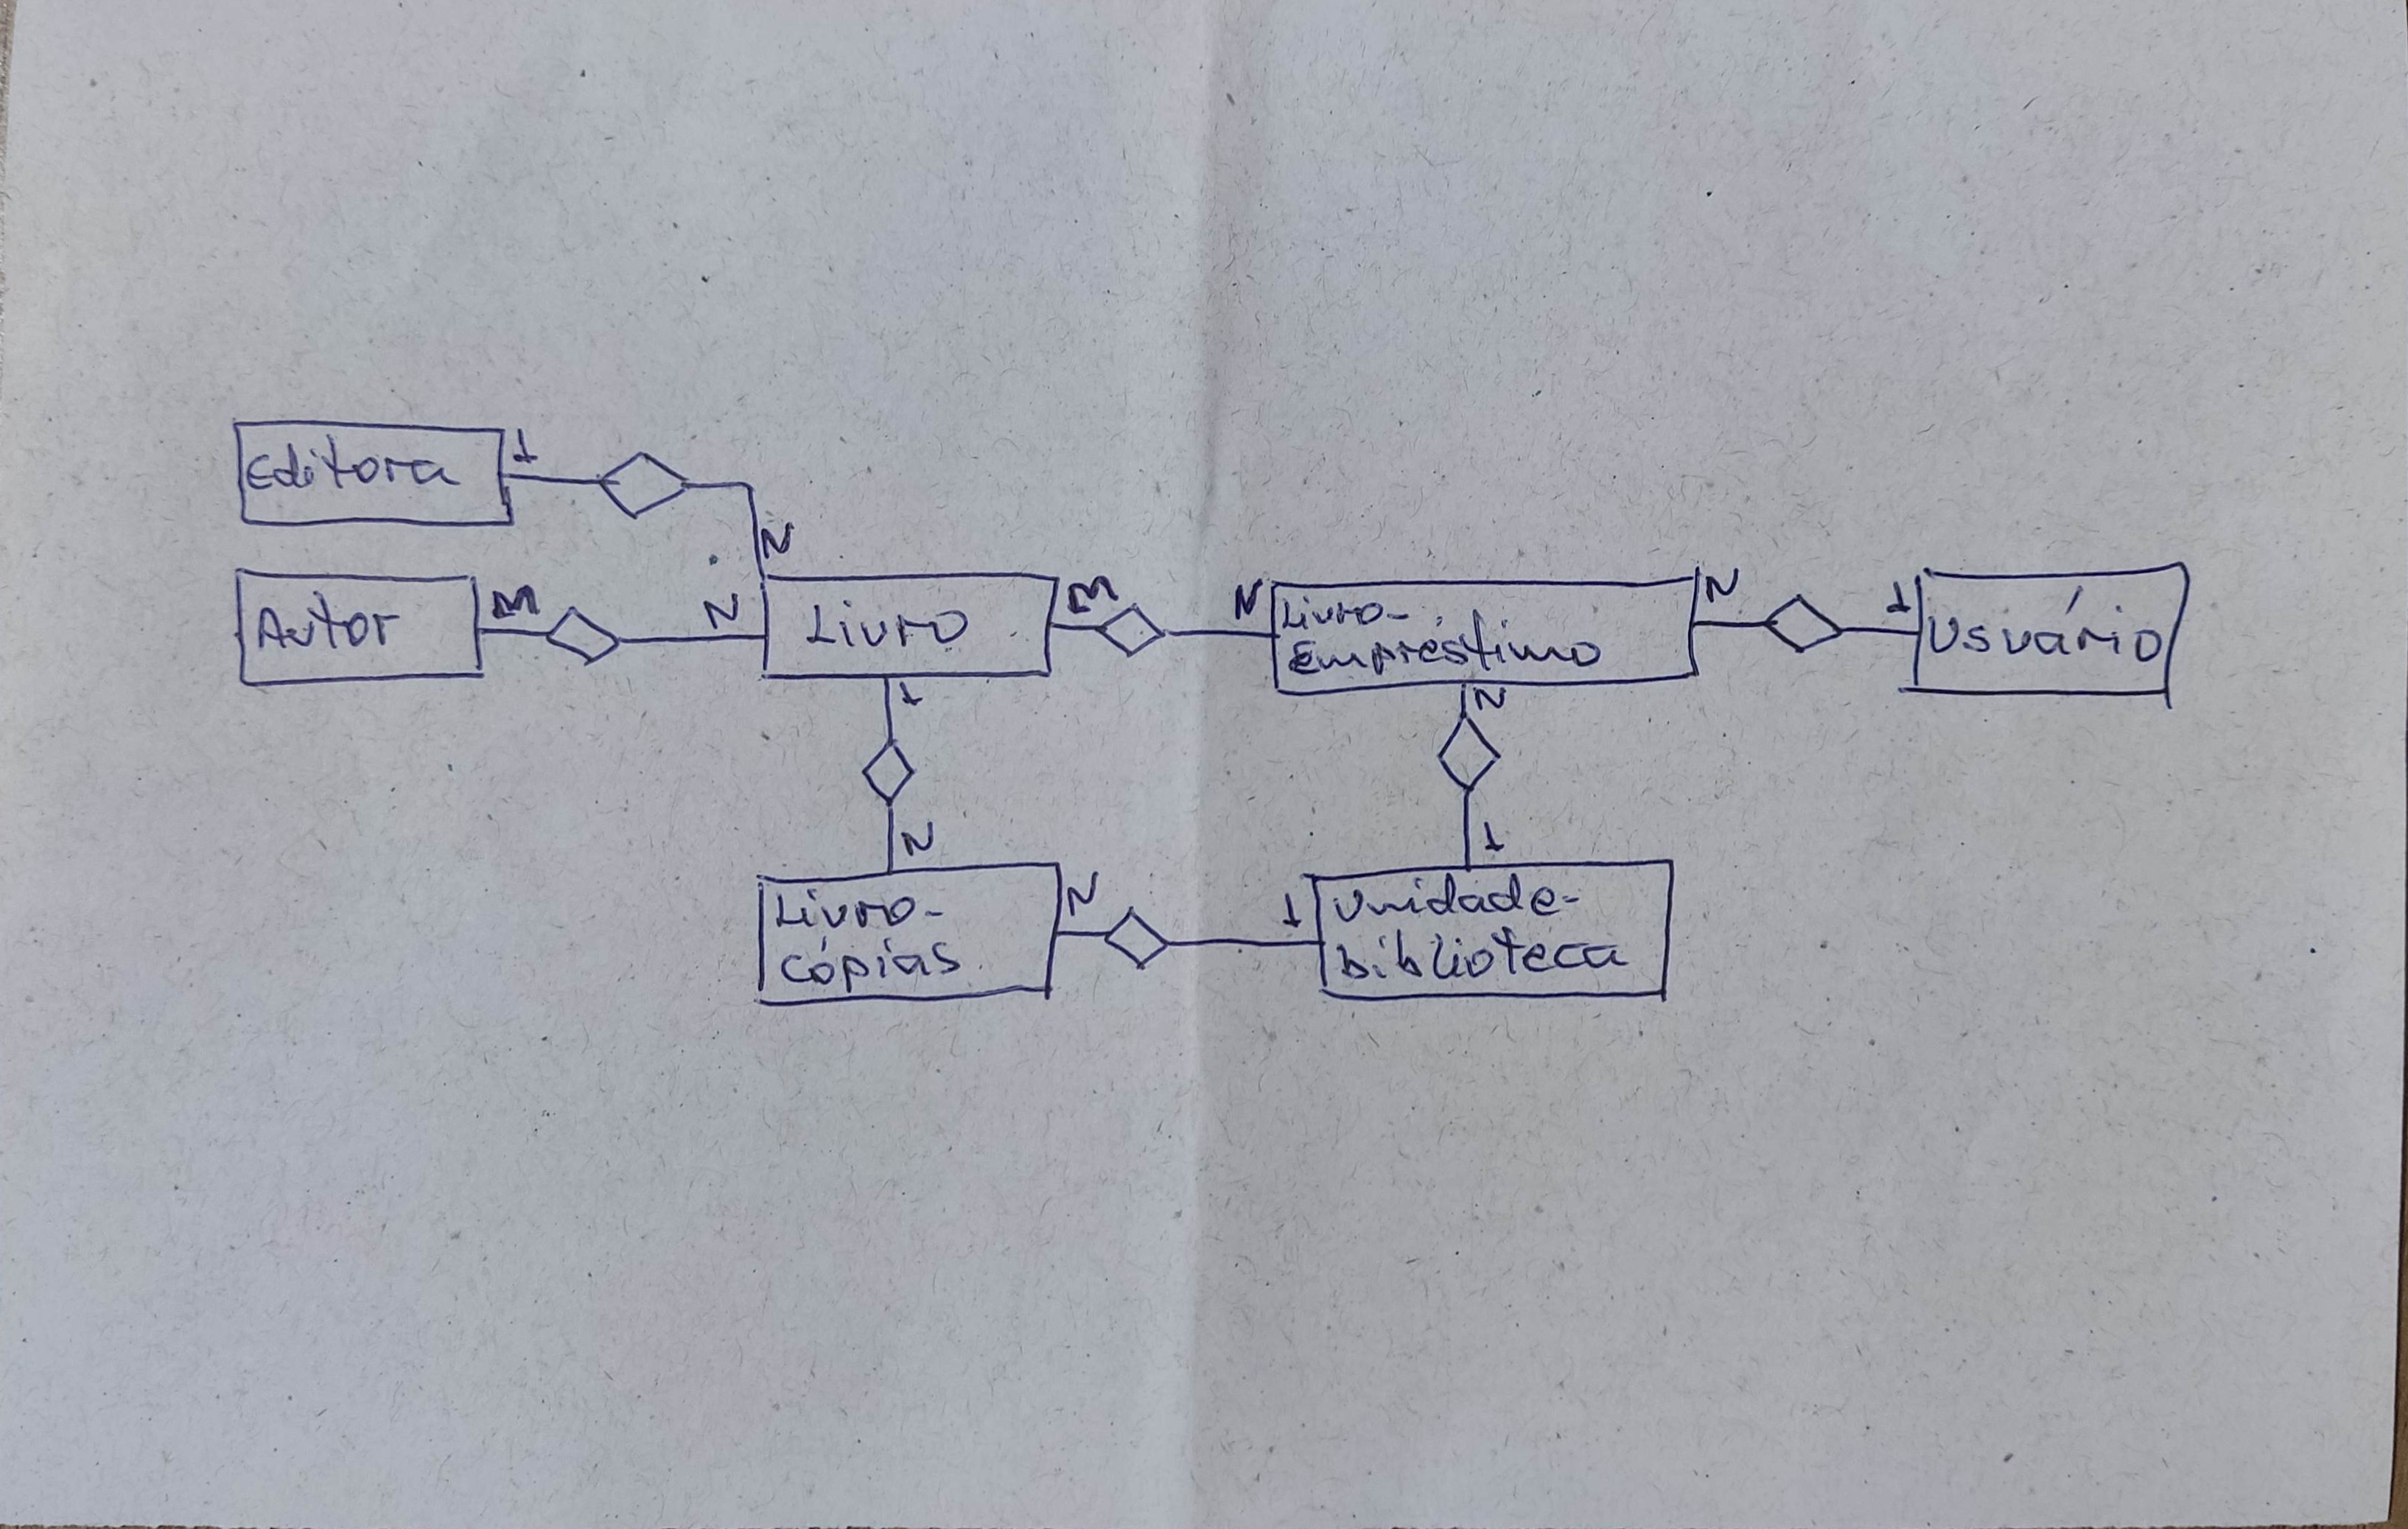 Editora
1
N
Autor
M
N
Livro
M
N
Livro-
Empréstimo
N
1
Usuário
1
N
N
1
Livro-
cópias
N
1
Unidade-
biblioteca